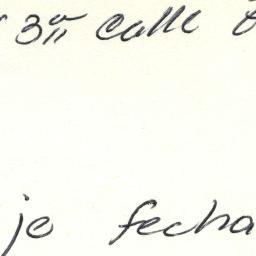 3ª calle
je fecha